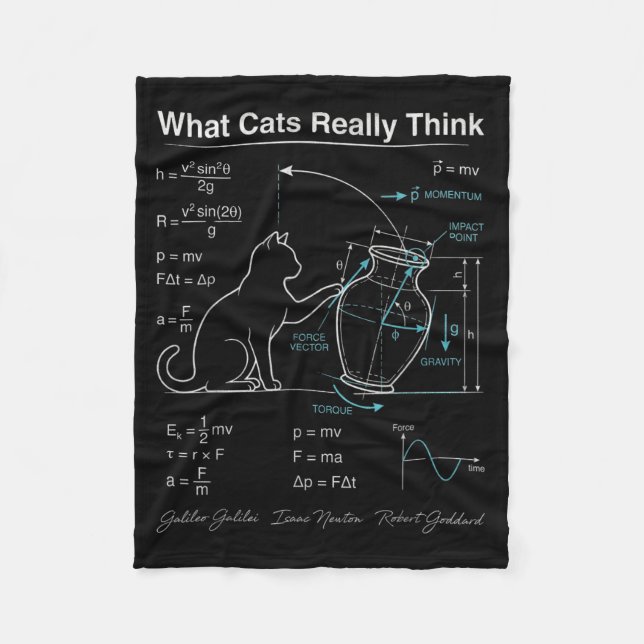 What Cats Really Think
h = v² sin²θ / 2g
R = v² sin(2θ) / g
p = mv
FΔt = Δp
a = F/m
p⃗ = mv
p⃗ MOMENTUM
IMPACT
POINT
θ
h
θ
h
g
ϕ
FORCE
VECTOR
GRAVITY
TORQUE
Eₖ = 1/2 mv
τ = r × F
a = F/m
p = mv
F = ma
Δp = FΔt
Force
time
Galileo Galilei Isaac Newton Robert Goddard